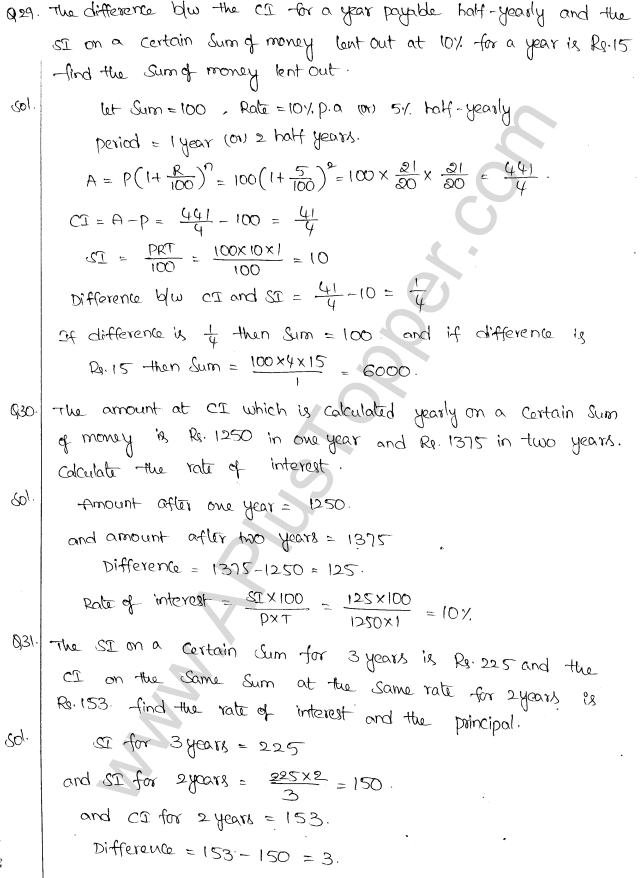 Q29. The difference b/w the CI for a year payable half-yearly and the
SI on a certain sum of money lent out at 10% for a year is Rs.15
find the sum of money lent out.
Sol. let Sum = 100, Rate = 10% p.a (or) 5% half-yearly
Period = 1 year (or) 2 half years.
A = P(1+R/100)^n = 100(1+5/100)^2 = 100 × 21/20 × 21/20 = 441/4.
CI = A-P = 441/4 - 100 = 41/4
SI = PRT/100 = 100×10×1/100 = 10
Difference b/w CI and SI = 41/4 - 10 = 1/4
If difference is 1/4 then Sum = 100 and if difference is
Rs.15 then Sum = 100×4×15/1 = 6000.
Q30. The amount at CI which is calculated yearly on a certain sum
of money is Rs. 1250 in one year and Rs. 1375 in two years.
Calculate the rate of interest.
Sol. Amount after one year = 1250.
and amount after two years = 1375
Difference = 1375-1250 = 125.
Rate of interest = SI×100/P×T = 125×100/1250×1 = 10%
Q31. The SI on a certain sum for 3 years is Rs. 225 and the
CI on the same sum at the same rate for 2 years is
Rs.153. find the rate of interest and the principal.
Sol. SI for 3 years = 225
and SI for 2 years = 225×2/3 = 150.
and CI for 2 years = 153.
Difference = 153-150 = 3.
www.APlusTopper.com